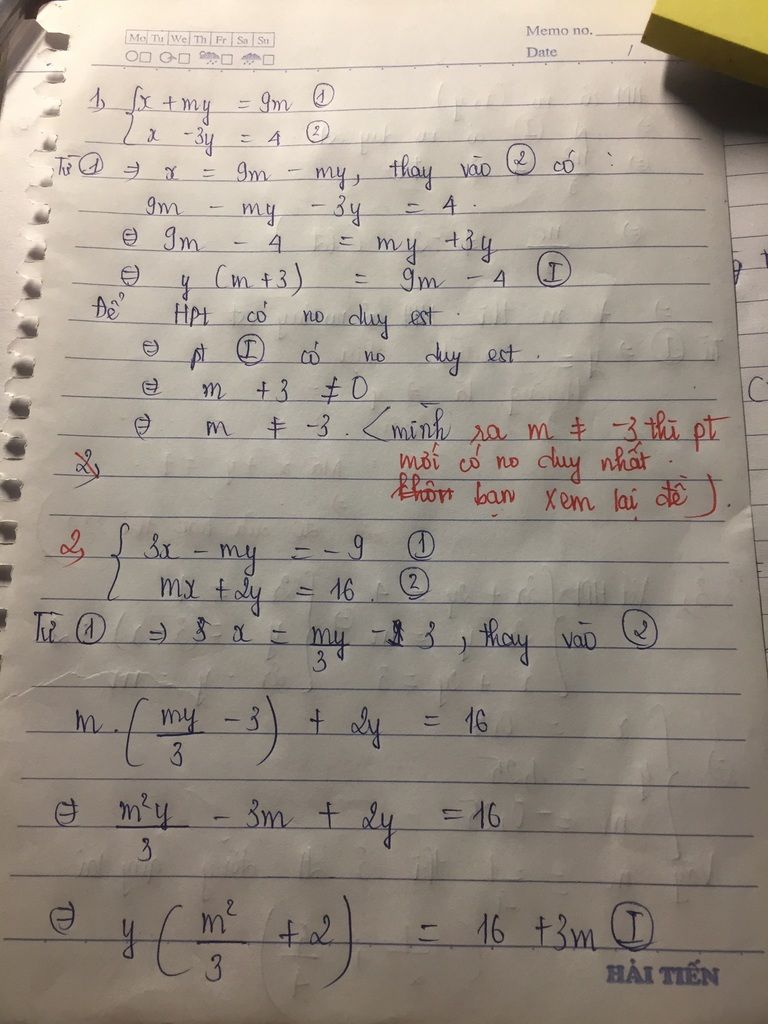 Mo Tu We Th Fr Sa Su
Memo no.
Date /
1, { x + my = 9m ①
x - 3y = 4 ②
Từ ① ⇒ x = 9m - my, thay vào ② có :
9m - my - 3y = 4.
⇔ 9m - 4 = my + 3y
⇔ y (m + 3) = 9m - 4 Ⓘ
Để HPt có no duy est.
⇔ pt Ⓘ có no duy est.
⇔ m + 3 ≠ 0
⇔ m ≠ -3. (mình ra m ≠ -3 thì pt
mới có no duy nhất.
2,
bạn xem lại đề).
2, { 3x - my = -9 ①
mx + 2y = 16. ②
Từ ① ⇒ x = my/3 - 3, thay vào ②
m. (my/3 - 3) + 2y = 16
⇔ m²y/3 - 3m + 2y = 16
⇔ y (m²/3 + 2) = 16 + 3m Ⓘ
HẢI TIẾN